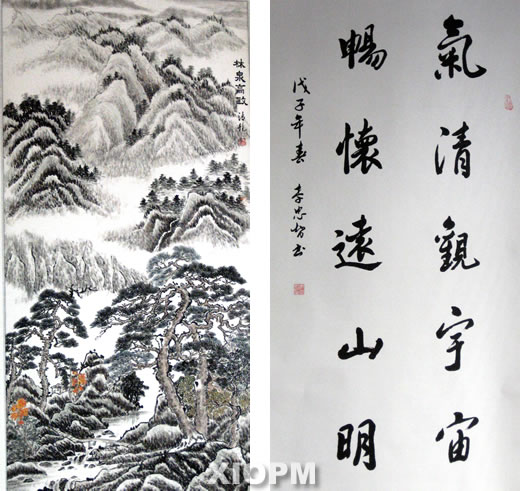 林泉高致
氣清觀宇宙
暢懷遠山明
戊子年春 李忠智书
XIOPM